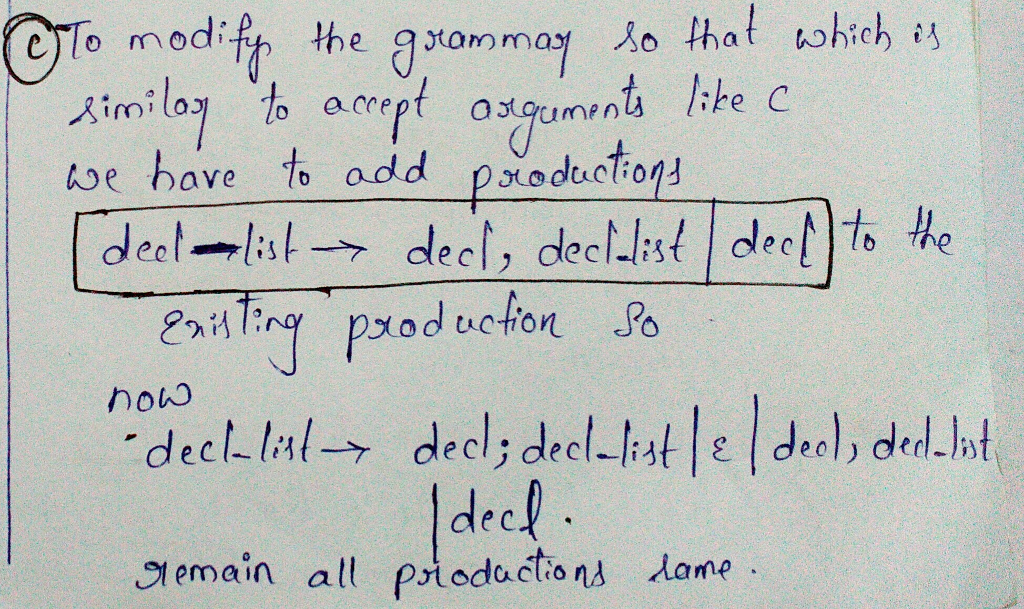 (c) To modify the grammar so that which is
similar to accept arguments like C
we have to add productions
decl-list → decl, decl-list | decl to the
Existing production so
now
decl-list → decl; decl-list | ε | decl, decl-list
| decl.
remain all productions same.